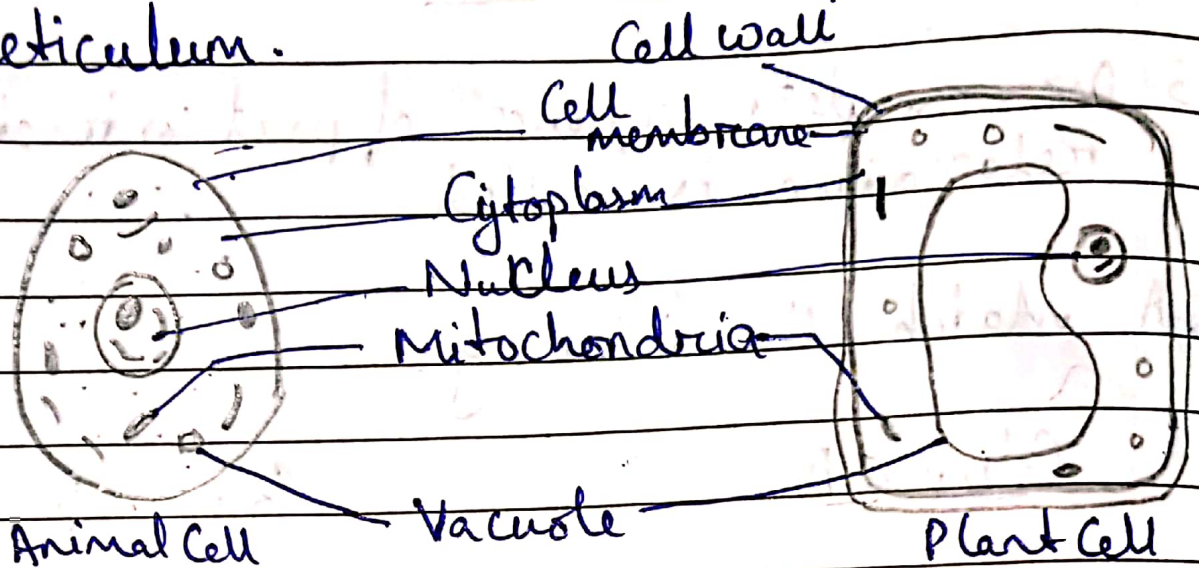 eticulum.
Cell wall
Cell
membrane
Cytoplasm
Nucleus
Mitochondria
Vacuole
Animal Cell
Plant Cell